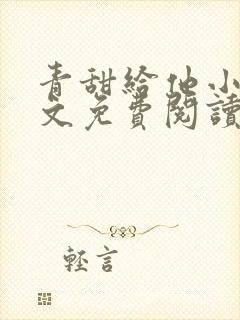 青甜給他小
文免費閱讀
輕言